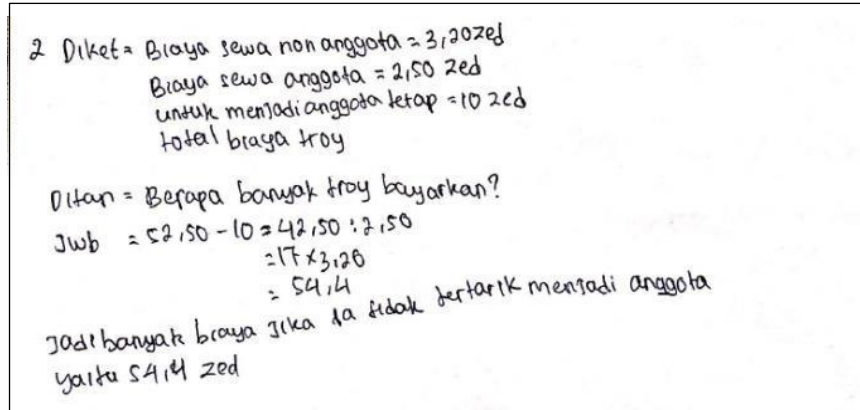 2 Diket = Biaya sewa non anggota = 3,20 zed
Biaya sewa anggota = 2,50 zed
untuk menjadi anggota tetap = 10 zed
total biaya troy
Ditan = Berapa banyak troy bayarkan?
Jwb = 52,50 - 10 = 42,50 : 2,50
= 17 x 3,20
= 54,4
Jadi banyak biaya jika ia tidak tertarik menjadi anggota
yaitu 54,4 zed